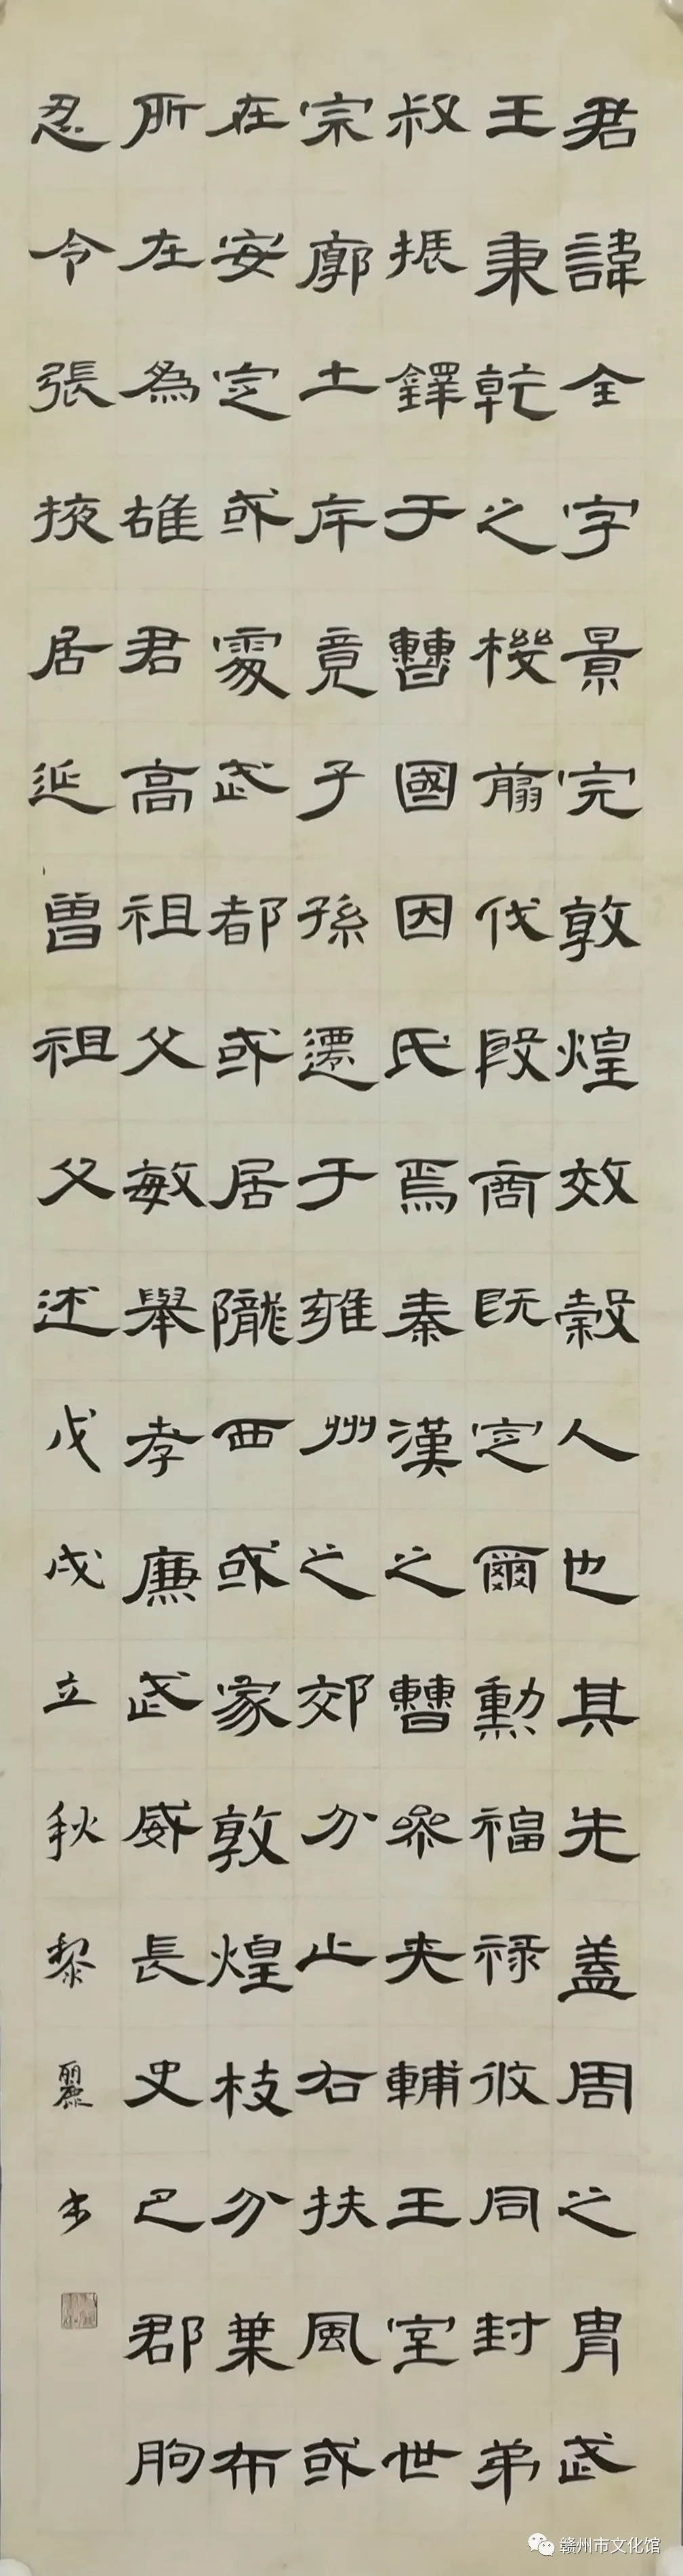 君諱全字景完敦煌效穀人也其先蓋周之胄武
王秉乾之機翦伐殷商既定爾勳福祿攸同封弟
叔振鐸于曹國因氏焉秦漢之曹參夾輔王室世
宗廓土斥竟子孫遷于雍州之郊分止右扶風或
在安定或處武都或居隴西或家敦煌枝分葉布
所在為雄君高祖父敏舉孝廉武威長史巴郡朐
忍令張掖居延曾祖父述戊戌立秋黎麗書
赣州市文化馆